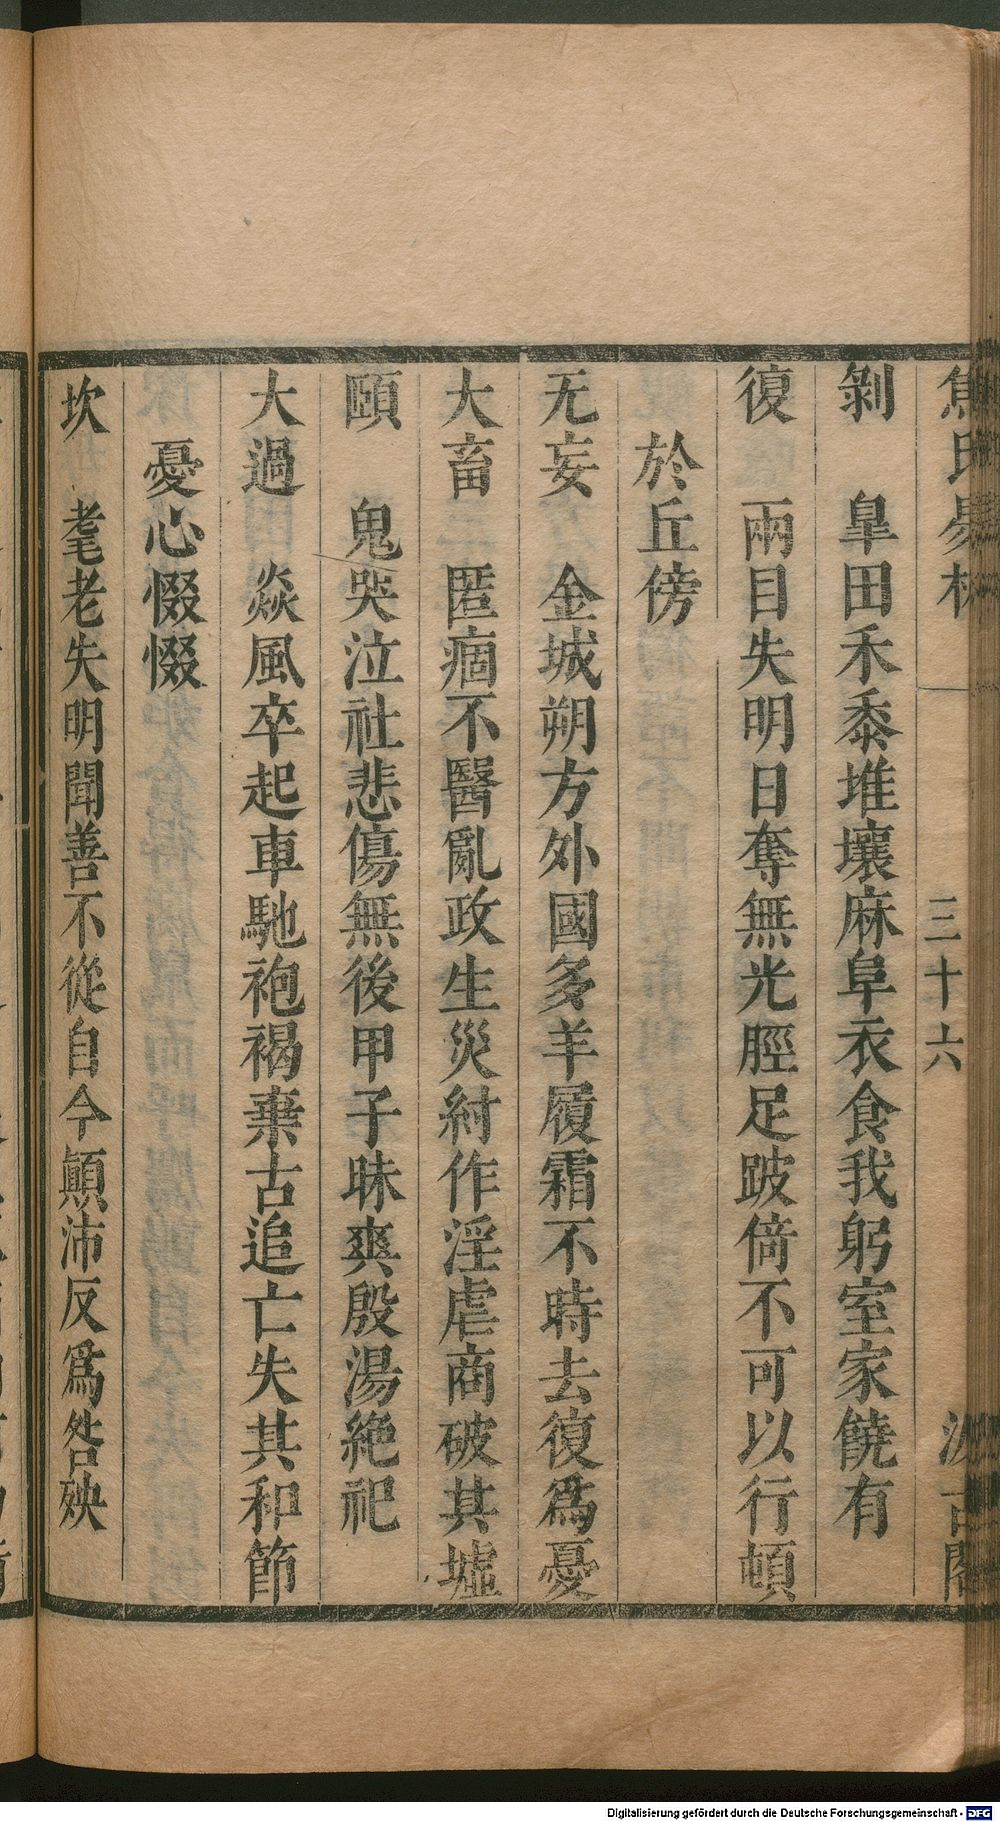 焦氏易林 三十六 汲古閣
剝 皐田禾黍堆壤麻阜衣食我躬室家饒有
復 兩目失明日奪無光脛足跛倚不可以行頓
於丘傍
无妄 金城朔方外國多羊履霜不時去復爲憂
大畜 匿痼不醫亂政生災紂作淫虐商破其墟
頤 鬼哭泣社悲傷無後甲子昧爽殷湯絶祀
大過 焱風卒起車馳袍褐棄古追亡失其和節
憂心惙惙
坎 耄老失明聞善不從自今顚沛反爲咎殃
Digitalisierung gefördert durch die Deutsche Forschungsgemeinschaft - DFG